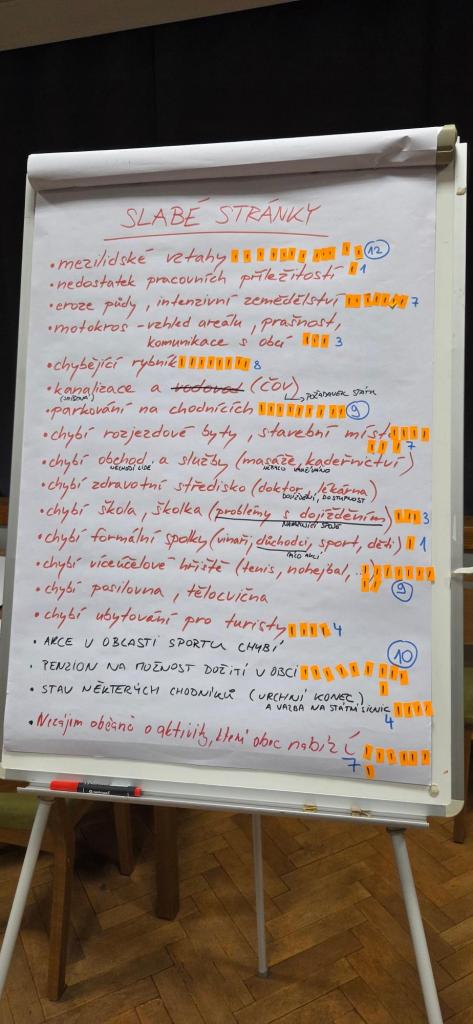 SLABÉ STRÁNKY
• mezilidské vztahy 12
• nedostatek pracovních příležitostí 1
• eroze půdy, intenzivní zemědělství 7
• motokros - vzhled areálu, prašnost,
komunikace s obcí 3
• chybějící rybník 8
• kanalizace a vodovod (ČOV)
POŽADAVEK STÁTU
• parkování na chodnících 9
• chybí rozjezdové byty, stavební míst
7
• chybí obchod a služby (masáže, kadeřnictví)
NECHODÍ LIDÉ
• chybí zdravotní středisko (doktor, lékárna)
DOJÍŽDĚNÍ, DOSTUPNOST
• chybí škola, školka (problémy s dojížděním) 3
NAVAZUJÍCÍ SPOJE
• chybí formální spolky (vinaři, důchodci, sport, děti) 1
• chybí víceúčelové hřiště (tenis, nohejbal, ...)
9
• chybí posilovna, tělocvična
• chybí ubytování pro turisty 4
• AKCE V OBLASTI SPORTU CHYBÍ
10
• PENZION NA MOŽNOST DOŽITÍ V OBCI
• STAV NĚKTERÝCH CHODNÍKŮ (VRCHNÍ KONEC)
A VAZBA NA STÁTNÍ SILNICI
4
• Nezájem občanů o aktivity, které obec nabízí
7